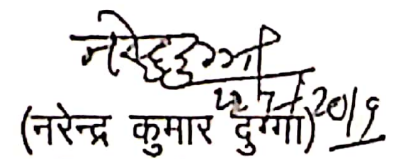 नरेन्द्र दुग्गा
22/7/2019
(नरेन्द्र कुमार दुग्गा)